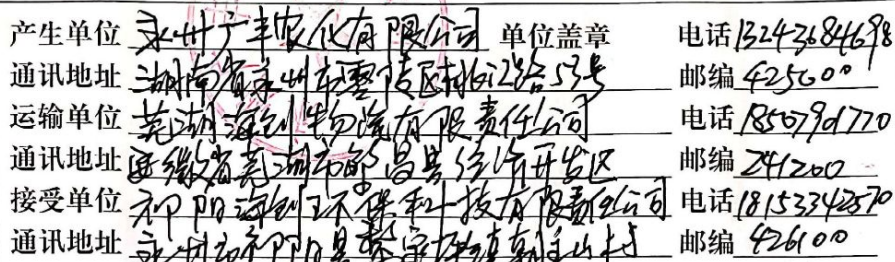 产生单位 永州广丰农化有限公司 单位盖章 电话 13243684698
通讯地址 湖南省永州市零陵区 路53号 邮编 425000
运输单位 芜湖海创物流有限责任公司 电话 18507901770
通讯地址 安徽省芜湖市 昌县经济开发区 邮编 241200
接受单位 祁阳海创环保科技有限责任公司 电话 18153342570
通讯地址 永州市祁阳县 镇 山村 邮编 426100